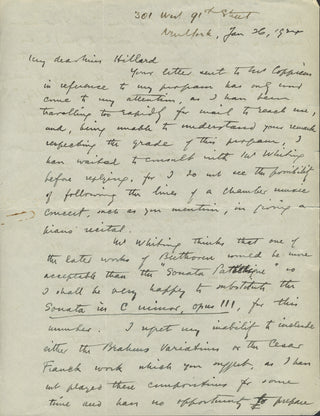 301 West 91st Street
New York, Jan 26, 1924
My dear Miss Hillard
Your letter sent to Mr Coppicus
in reference to my program has only now
come to my attention, as I have been
travelling too rapidly for mail to reach me,
and, being unable to understand your remark
respecting the grade of this program, I
have waited to consult with Mr Whiting
before replying, for I do not see the possibility
of following the lines of a chamber music
concert, such as you mention, in giving a
piano recital.
Mr Whiting thinks that one of
the later works of Beethoven would be more
acceptable than the "Sonata Pathétique" so
I shall be very happy to substitute the
Sonata in C minor, opus 111, for this
number. I regret my inability to include
either the Brahms Variations or the Cesar
Franck work which you suggest, as I have
not played these compositions for some
time and have no opportunity to prepare